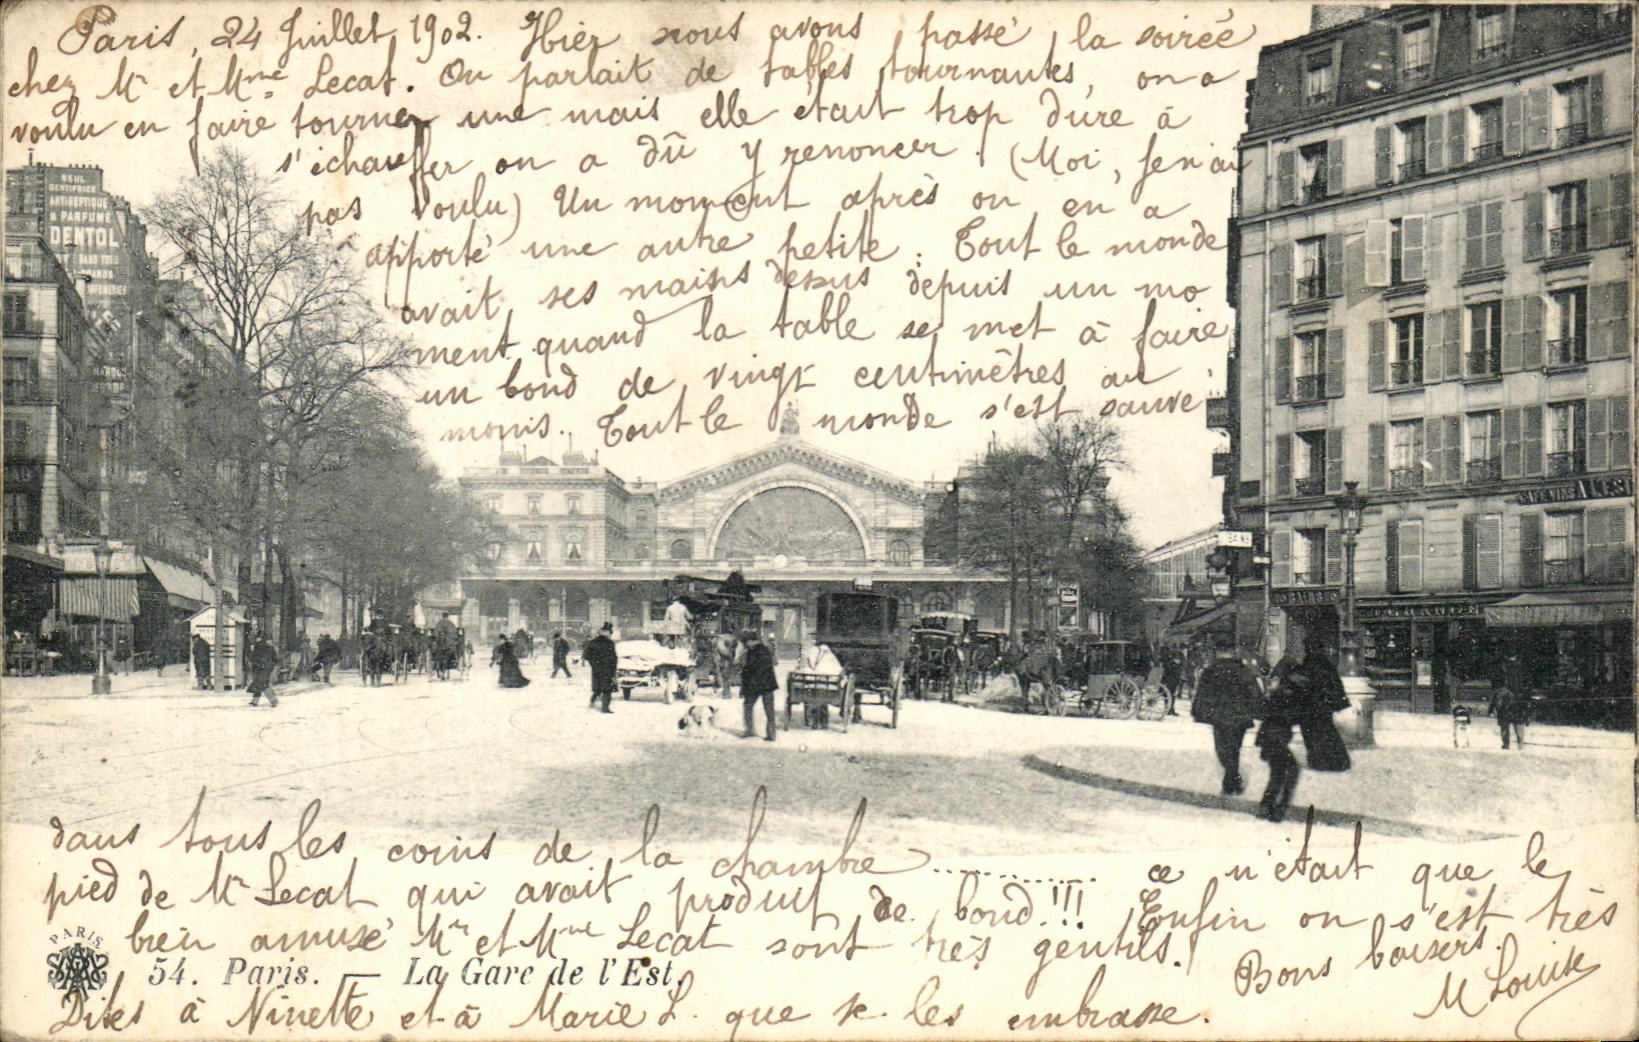 Paris, 24 Juillet 1902. Hier nous avons passé la soirée
chez Mr et Mme Lecat. On parlait de tables tournantes, on a
voulu en faire tourner une mais elle était trop dure à
s'échauffer on a dû y renoncer. (Moi, je n'ai
pas voulu) Un moment après on en a
apporté une autre petite. Tout le monde
avait ses mains dessus depuis un mo
ment quand la table se met à faire
un bond de vingt centimètres au
moins. Tout le monde s'est sauvé
SEUL
DENTIFRICE
ANTISEPTIQUE
& PARFUMÉ
DENTOL
CAFÉ VINS À L'EST
dans tous les coins de la chambre.............. ce n'était que le
pied de Mr Lecat qui avait produit ce bond!!! Enfin on s'est très
bien amusé Mr et Mme Lecat sont très gentils.
Bons baisers.
M Louise
PARIS
54. Paris. — La Gare de l'Est.
Dites à Ninette et à Marie L. que je les embrasse.